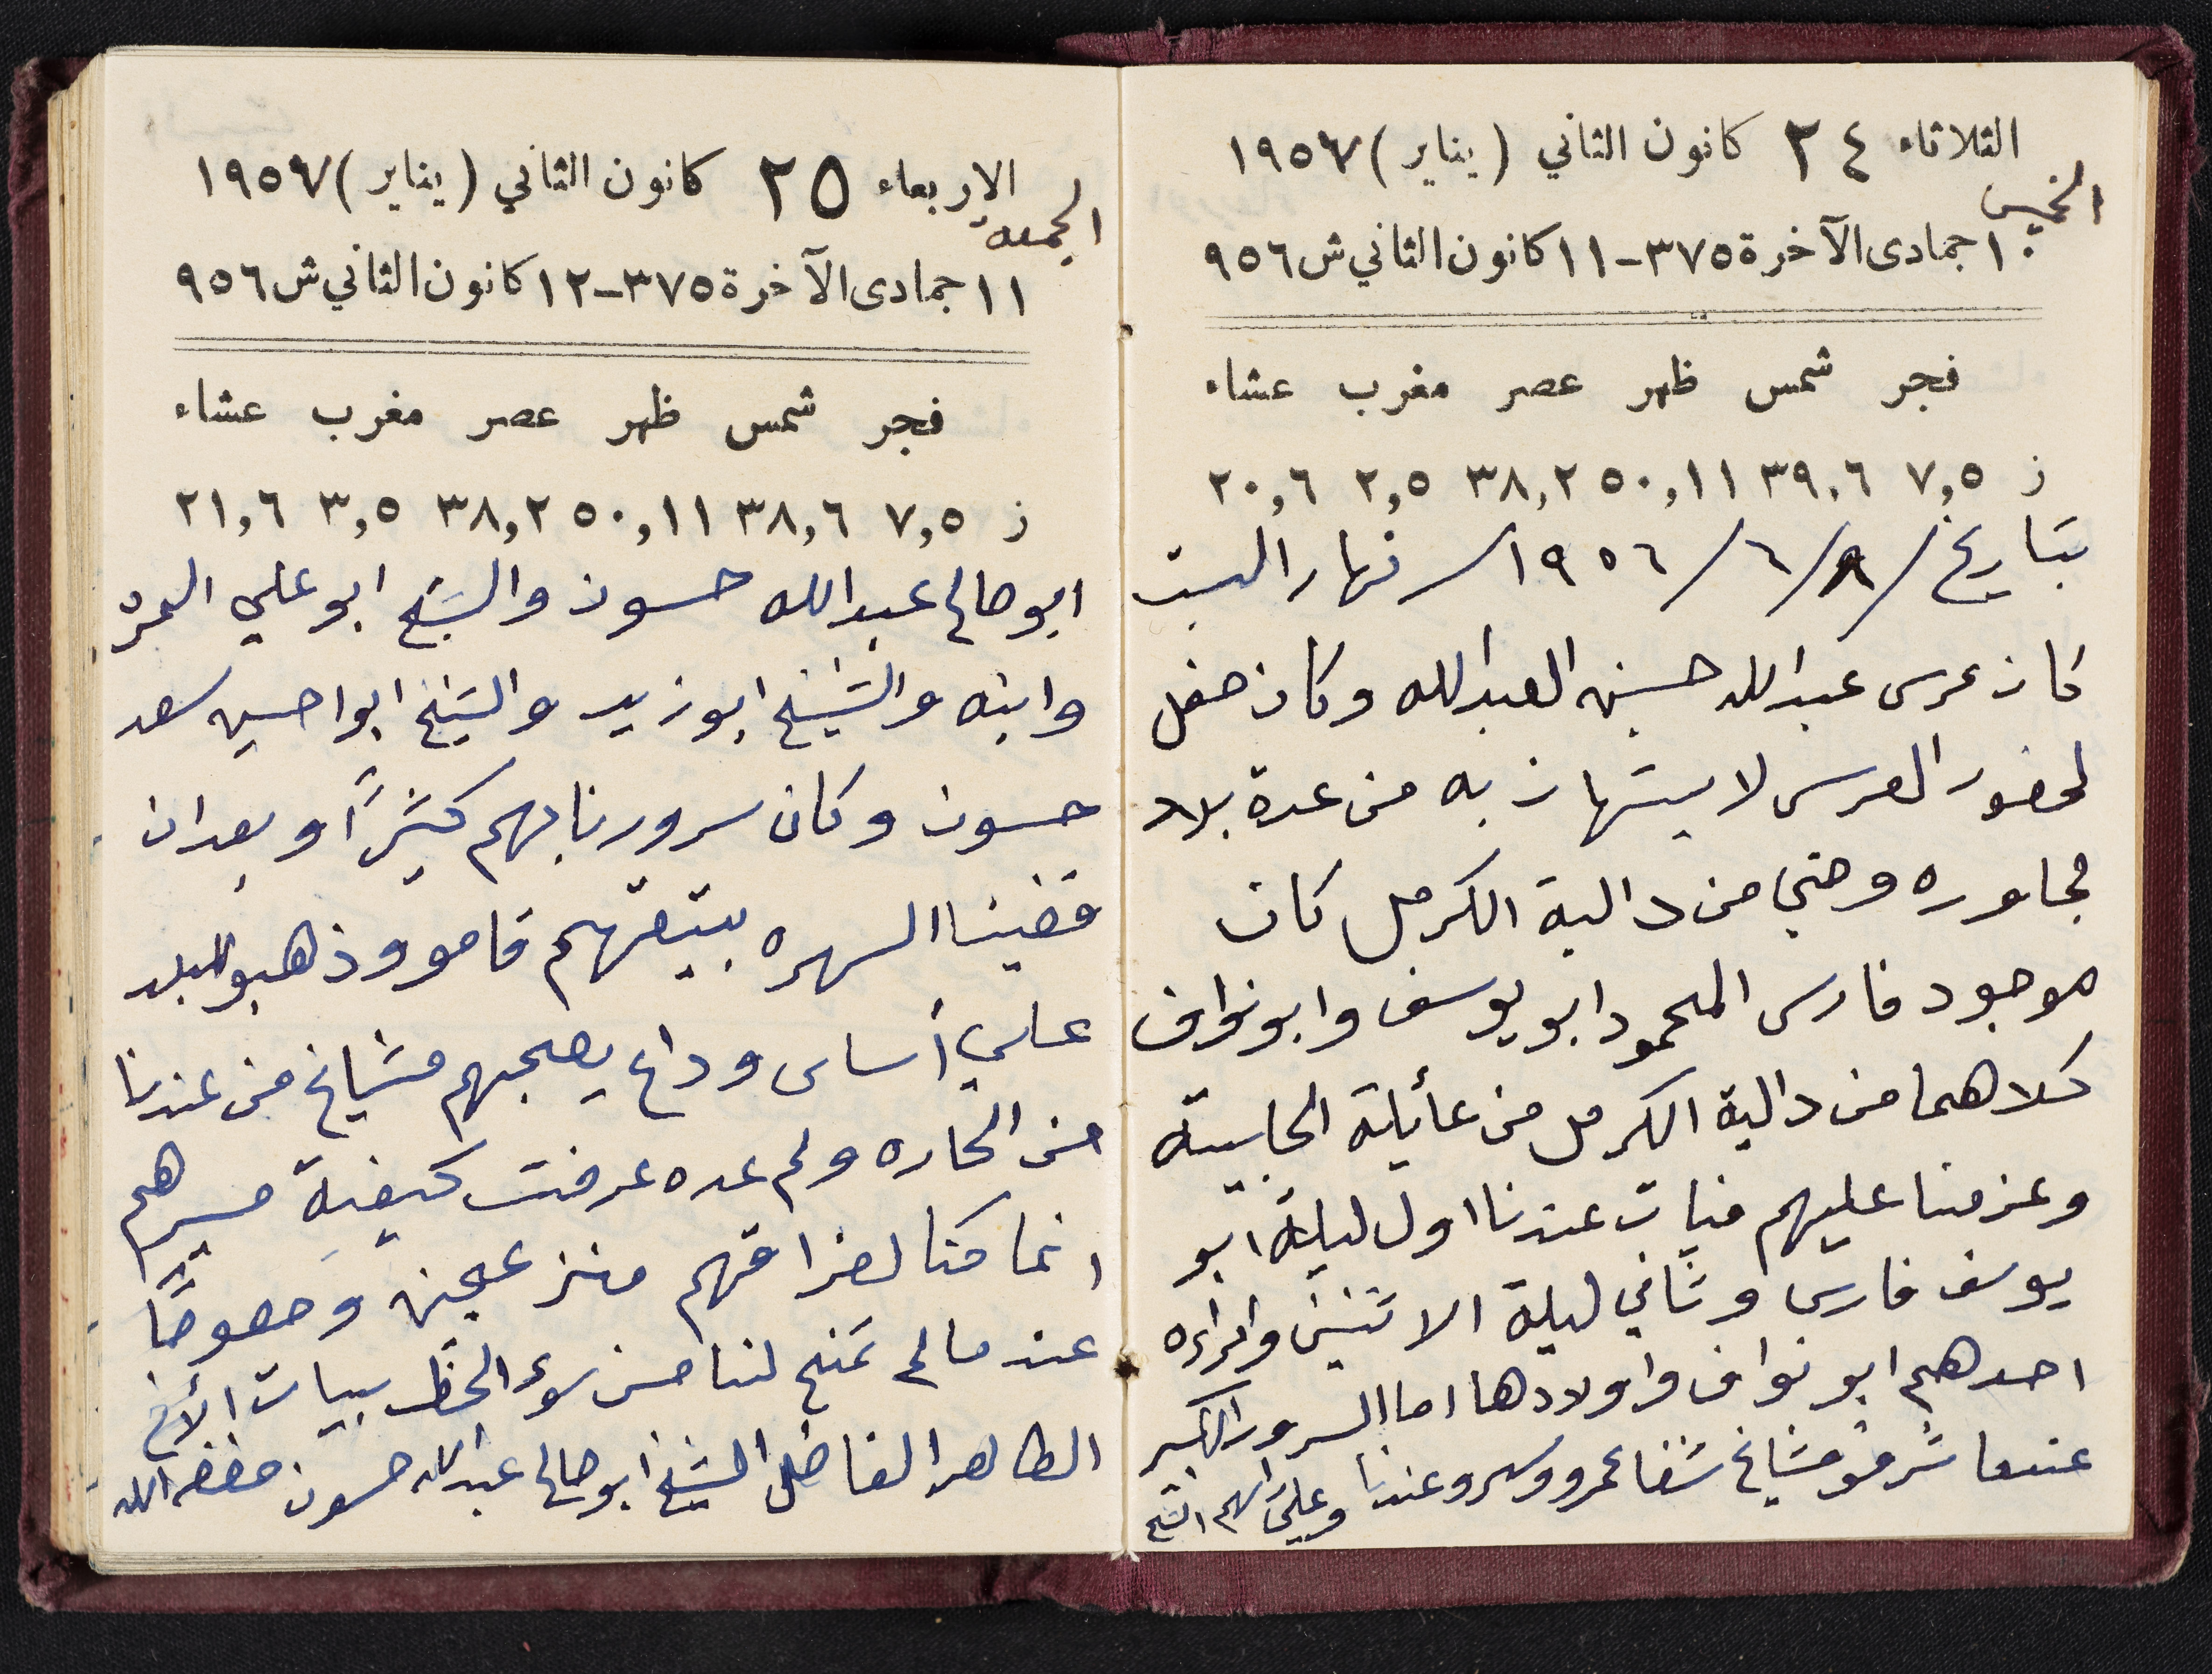 الثلاثاء ٢٤ كانون الثاني (يناير) ١٩٥٧
الخميس
١٠ جمادى الآخرة ٣٧٥-١١ كانون الثاني ش ٩٥٦
فجر شمس ظهر عصر مغرب عشاء
ز ٧,٥ ٣٩,٦ ٥٠,١١ ٣٨,٢ ٢,٥ ٢٠,٦
بتاريخ /٦/ ١٩٥٦ نهار السبت
كان عرس عبدالله حسين العبدالله وكان حفل
لحضور العرس لا يستهان به من عدة بلاد
مجاوره وحتي من دالية الكرمل كان
موجود فارس المحمود ابو يوسف وابو نواف
كلاهما من دالية الكرمل من عائيلة الحلبية
وعزمنا عليهم فبات عندنا اول ليلة ابو
يوسف فارس وثاني ليلة الاتنين وامراءه
احدهم ابو نواف واولادها اما السرور الكبير
عندما شرفو مشايخ شفاعمرو وسهرو عندنا وعلى راسهم الشيخ
الاربعاء ٢٥ كانون الثاني (يناير) ١٩٥٧
الجمعة
١١ جمادى الآخرة ٣٧٥-١٢ كانون الثاني ش ٩٥٦
فجر شمس ظهر عصر مغرب عشاء
ز ٧,٥ ٣٨,٦ ٥٠,١١ ٣٨,٢ ٣,٥ ٢١,٦
ابو صالح عبدالله حسون والشيخ ابو علي
وابنه والشيخ ابو زيد والشيخ ابو احسين سعد
حسون وكان سرورنا بهم كثيرًا وبعدان
قضينا السهره قامو وذهبو للبلد
علي أساس وداع يصحبهم مشايخ من عندنا
من الحاره ولم عده عرفت كيفية مسيرهم
انما كنا لفراقهم منزعجين وخصوصًا
عندما لم تمنح لنا من سوء الحظ ببيات الأخ
الطاهر الفاضل الشيخ ابو صالح عبدالله حسون حفضه الله